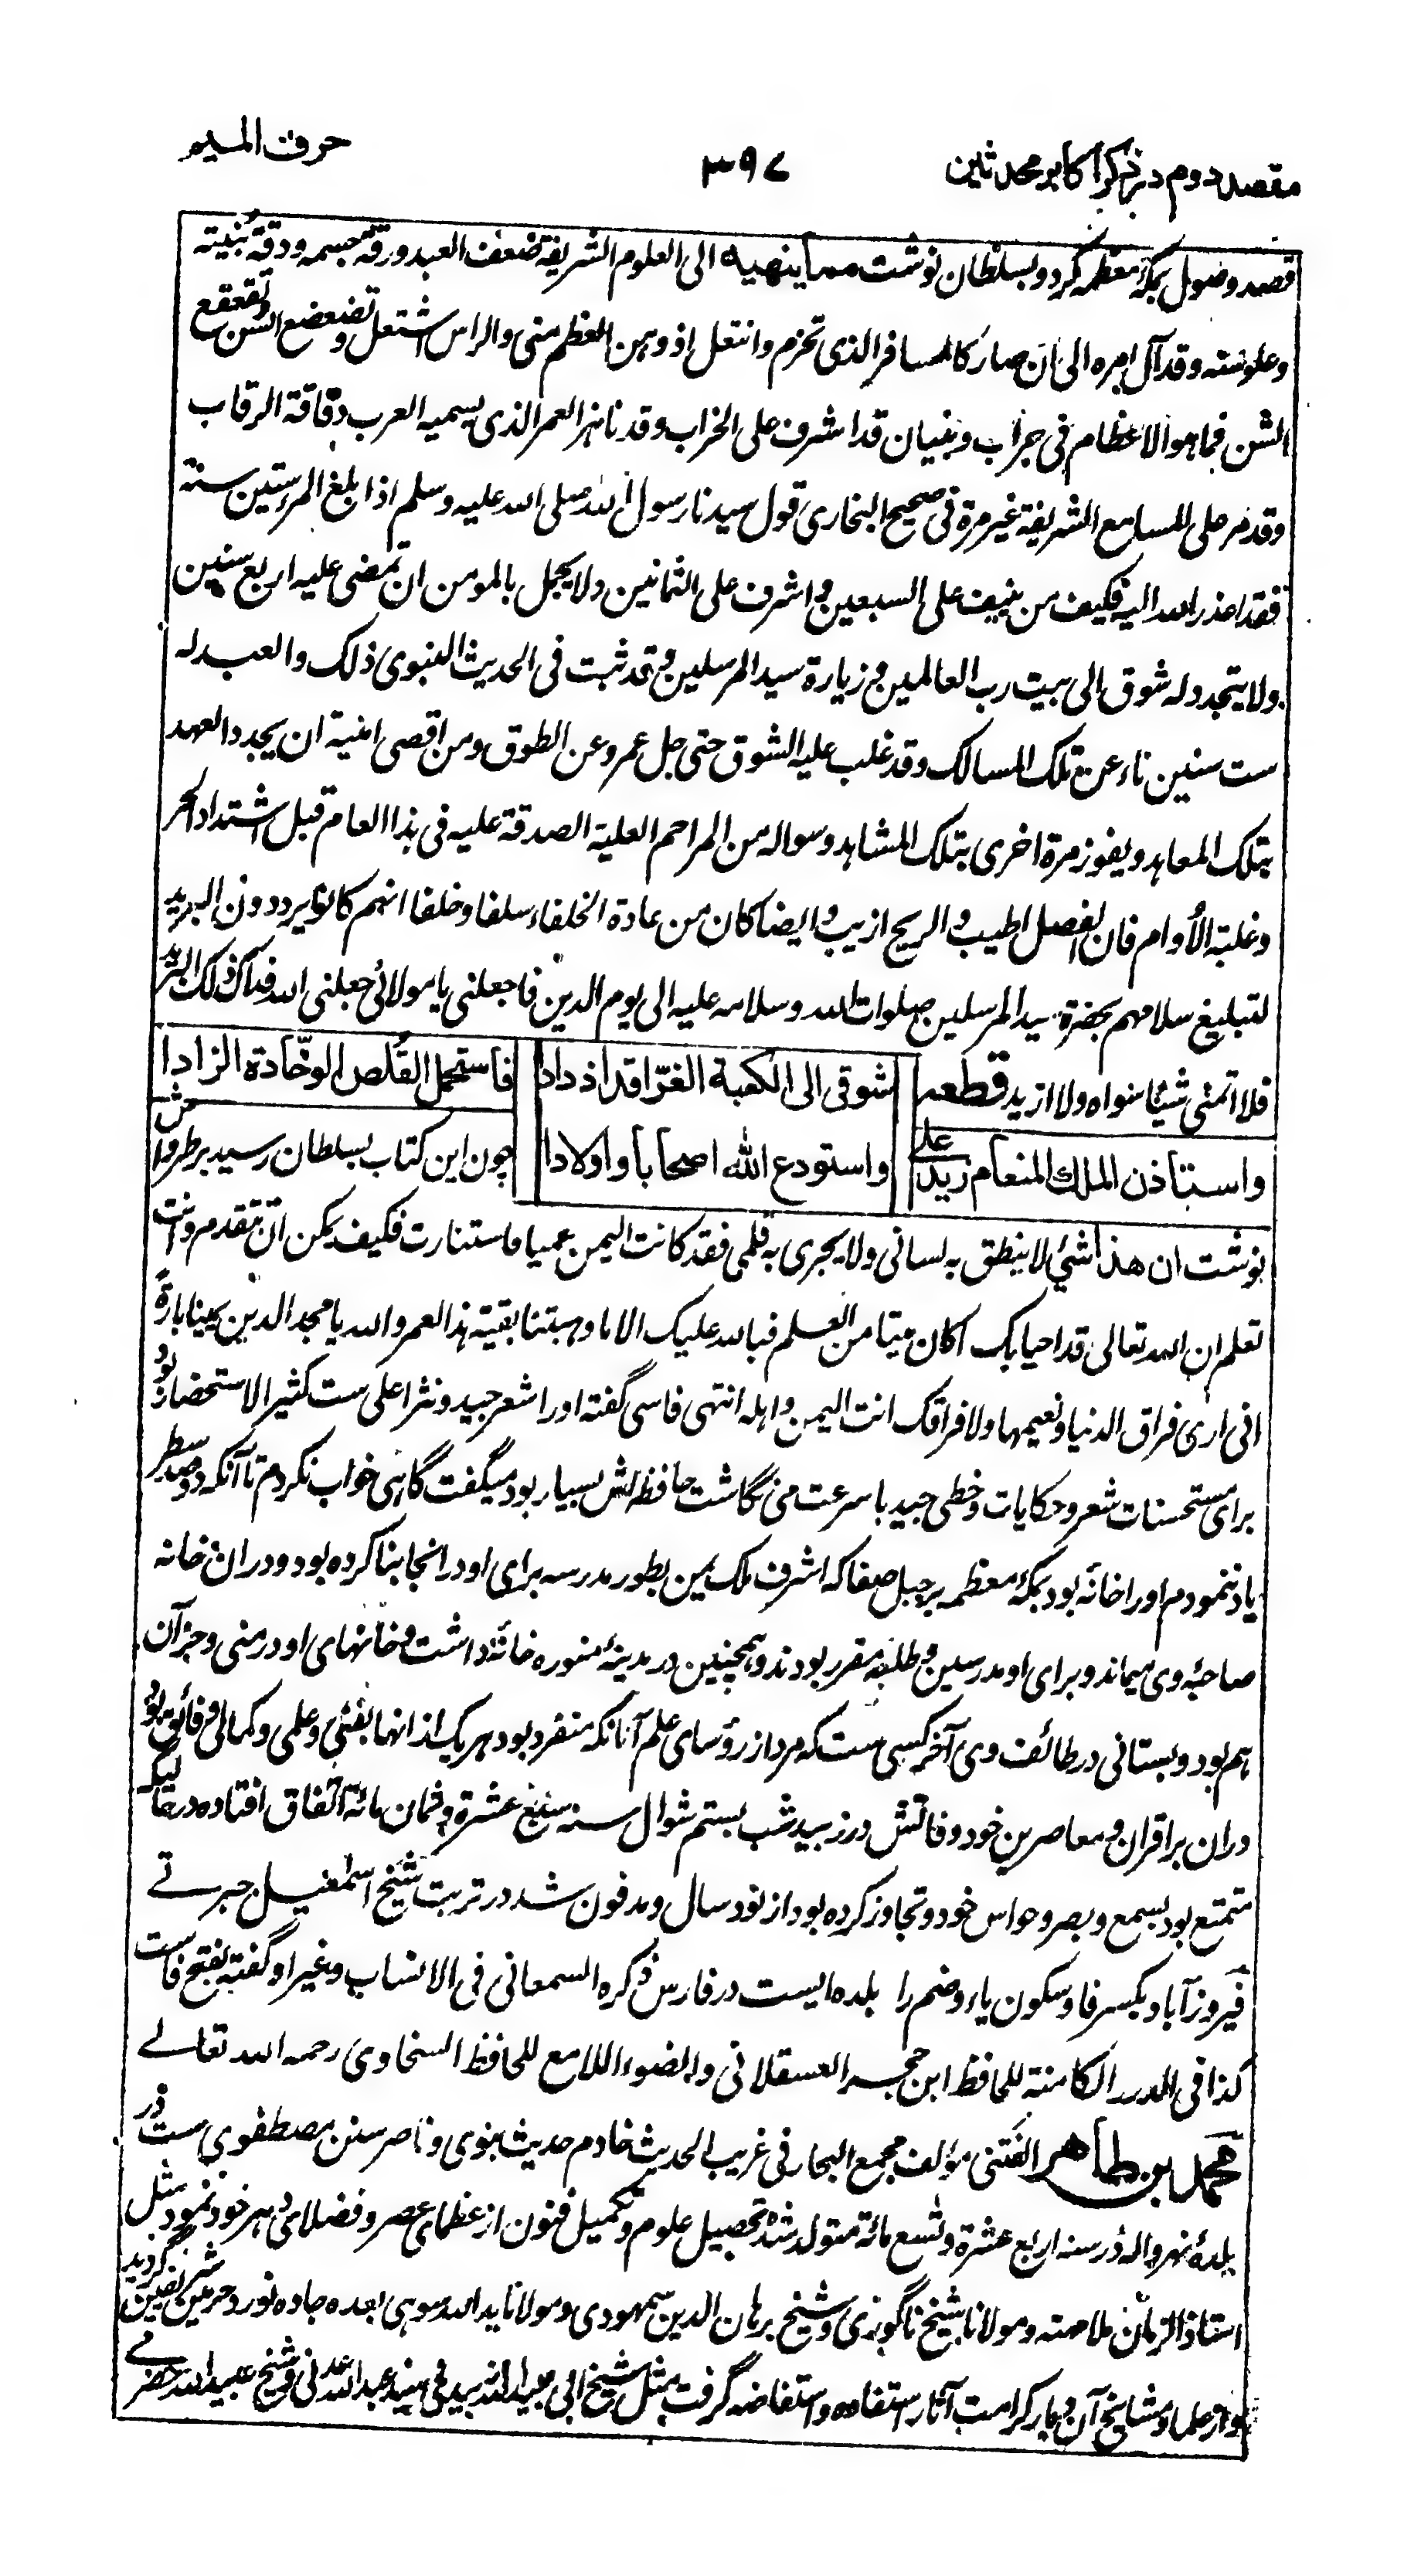 مقصد دوم در ذکر اکابر محدثین
۳۹۷
حرف المیم
قصد وصول بمکۂ معظمہ کرد و بسلطان نوشت مما ینھیہ الی العلوم الشریفۃ ضعف العبد ورقۃ جسمہ ودقۃ بُنیتہ
وعلو سنہ وقد آل امرہ الی ان صار کالمسافر الذی تحزم وانتعل اذ وہن العظم منی والراس اشتعل وتضعضع السن وتقعقع
الشن فما ہو الا عظام فی جراب وبنیان قد اشرف علی الخراب وقد ناہز العمر الذی یسمیہ العرب دقاقۃ الرقاب
وقد مر علی المسامع الشریفۃ غیر مرۃ فی صحیح البخاری قول سیدنا رسول اللہ صلی اللہ علیہ وسلم اذا بلغ المر ستین سنۃ
فقد اعذر اللہ الیہ فکیف من ینیف علی السبعین واشرف علی الثمانین ولا یجمل بالمومن ان تمضی علیہ اربع سنین
ولا یتجدد لہ شوق الی بیت رب العالمین و زیارۃ سید المرسلین و قد ثبت فی الحدیث النبوی ذلک والعبد لہ
ست سنین ناء عن تلک المسالک وقد غلب علیہ الشوق حتی جل عمرو عن الطوق ومن اقصی امنیۃ ان یجدد العہد
بتلک المعاہد ویفوز مرۃ اخری بتلک المشاہد وسوالہ من المراحم العلیۃ الصدقۃ علیہ فی ہذا العام قبل اشتداد الحر
وغلبۃ الأوام فان الفصل اطیب والریح ازیب وایضا کان من عادۃ الخلفاء سلفا وخلفا انہم کانوا یبردون البرید
لتبلیغ سلامہم بحضرۃ سید المرسلین صلوات اللہ وسلامہ علیہ الی یوم الدین فاجعلنی یا مولائی جعلنی اللہ فداک ذلک البرید
فلا اتمنی شیئا سواہ ولا ازید قطعہ شوقی الی الکعبۃ الغرّا قد اذ دادا فاستحمل القُلص الوخّادۃ الزادا
واستاذن الملك المنعام زید علی واستودع اللّٰہ اصحابا واولادا چون این کتاب بسلطان رسید بر طرہ اش
نوشت ان ھذا شیٔ لا ینطق بہ لسانی ولا یجری بہ قلمی فقد کانت الیمن عمیا فاستنارت فکیف یمکن ان تتقدم وانت
تعلم ان اللہ تعالی قد احیا بک ما کان میتا من العلم فباللہ علیک الا ما وہبتنا بقیۃ ہذا العمر واللہ یا مجد الدین یمینا بارۃً
انی اری فراق الدنیا ونعیمہا ولا فراقک انت الیمن واہلہ انتہی فاسی گفتہ او را شعر جید و نثر اعلی ست کثیر الاستحضار بود
برای مستحسنات شعر و حکایات و خطی جید با سرعت می نگاشت حافظہ اش بسیار بود میگفت گاہی خواب نکردم تا آنکہ دو صد سطر
یاد ننمودم او را خانۂ بود بمکۂ معظمہ بر جبل صفا کہ اشرف ملک یمن بطور مدرسہ برای او در انجا بنا کردہ بود و در ان خانہ
صاحبۂ وی میماند و برای او مدرسین و طلبہ مقرر بودند و ہمچنین در مدینۂ منورہ خانۂ داشت و خانہای او در منی و جز آن
ہم بود و بستانی در طائف وی آخر کسی ست کہ مرد از رؤسای علم آنانکہ منفرد بود ہر یک از انہا بفنی و علمی و کمالی و فائق بود
دران بر اقران و معاصرین خود وفاتش در زبید شب بستم شوال سنہ سبع عشرۃ و ثمان مائۃ اتفاق افتادہ در حالیکہ
متمتع بود بسمع و بصر و حواس خود و تجاوز کردہ بود از نود سال و مدفون شد در تربت شیخ اسمعیل جبرتے
فیروزآباد بکسر فا و سکون یاء و ضم را بلدہ ایست در فارس ذکرہ السمعانی فی الانساب و غیر او گفتہ بفتح فاست
کذا فی الدرر الکامنۃ للحافظ ابن حجر العسقلانی والضوء اللامع للحافظ السخاوی رحمہ اللہ تعالے
محمد بن طاهر الفتنی مؤلف مجمع البحار فی غریب الحدیث خادم حدیث نبوی و ناصر سنن مصطفوی ست در
بلدۂ نہروالہ در سنہ اربع عشرۃ و تسع مائۃ متولد شدہ تحصیل علوم و تکمیل فنون از عظمای عصر و فضلای دہر خود نمود مثل
استاذ الزمان ملا مہتہ و مولانا شیخ ناگوری و شیخ برہان الدین سمہودی و مولانا ید اللہ سوہی بعدہ جادہ نورد حرمین شریفین گردید
و از علما و مشایخ آن دیار کرامت آثار استفادہ و استفاضہ گرفت مثل شیخ ابی عبید اللہ زبیدی و سید عبد اللہ عدنی و شیخ عبید اللہ حضرمے